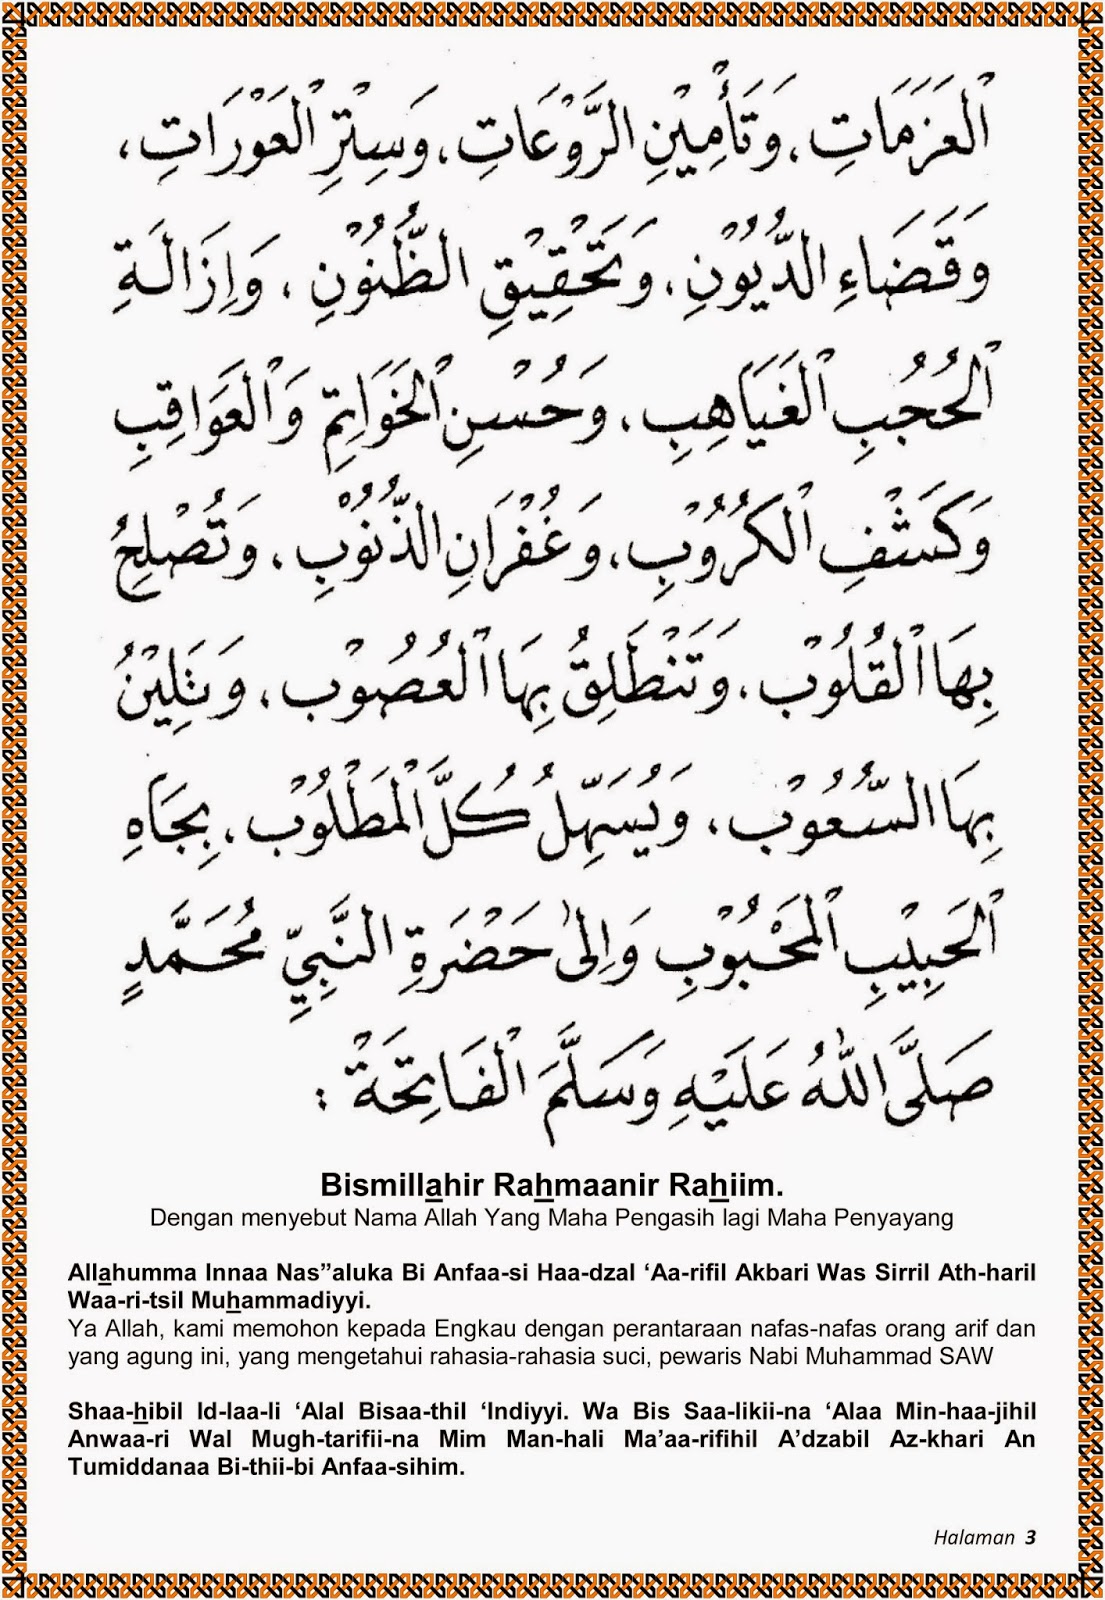 ٱلْعَزَمَاتِ، وَتَأْمِيْنِ الرَّوْعَاتِ، وَسِتْرِ ٱلْعَوْرَاتِ،
وَقَضَاءِ الدُّيُوْنِ، وَتَحْقِيْقِ الظُّنُوْنِ، وَاِزَالَةِ
ٱلْحُجُبِ ٱلْغَيَاهِبِ، وَحُسْنِ ٱلْخَوَاتِمِ وَٱلْعَوَاقِبِ
وَكَشْفِ ٱلْكُرُوْبِ، وَغُفْرَانِ الذُّنُوْبِ، وَتُصْلِحُ
بِهَا ٱلْقُلُوْب، وَتَنْطَلِقُ بِهَا ٱلْعُصُوْب، وَتَلِيْنُ
بِهَا السُّعُوْب، وَيُسَهِّلُ كُلَّ ٱلْمَطْلُوْب، بِجَاهِ
ٱلْحَبِيْبِ ٱلْمَحْبُوْبِ وَاِلٰى حَضْرَةِ النَّبِيِّ مُحَمَّدٍ
صَلَّى اللّٰهُ عَلَيْهِ وَسَلَّمَ ٱلْفَاتِحَةْ :
Bismillahir Rahmaanir Rahiim.
Dengan menyebut Nama Allah Yang Maha Pengasih lagi Maha Penyayang
Allahumma Innaa Nas”aluka Bi Anfaa-si Haa-dzal ‘Aa-rifil Akbari Was Sirril Ath-haril
Waa-ri-tsil Muhammadiyyi.
Ya Allah, kami memohon kepada Engkau dengan perantaraan nafas-nafas orang arif dan
yang agung ini, yang mengetahui rahasia-rahasia suci, pewaris Nabi Muhammad SAW
Shaa-hibil Id-laa-li ‘Alal Bisaa-thil ‘Indiyyi. Wa Bis Saa-likii-na ‘Alaa Min-haa-jihil
Anwaa-ri Wal Mugh-tarifii-na Mim Man-hali Ma’aa-rifihil A’dzabil Az-khari An
Tumiddanaa Bi-thii-bi Anfaa-sihim.
Halaman 3